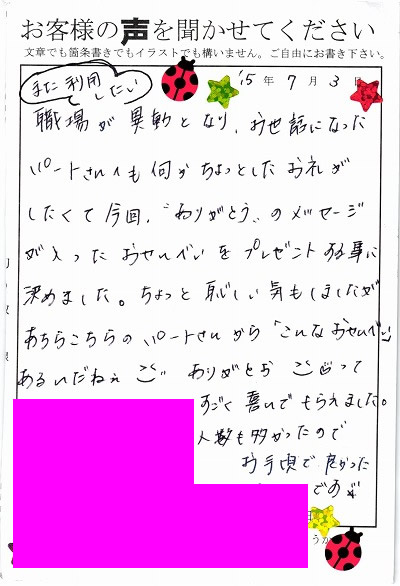 お客様の声を聞かせてください
文章でも箇条書きでもイラストでも構いません。ご自由にお書き下さい。
また利用したい
'15年 7月 3日
職場が異動となり、お世話になった
パートさんへも何かちょっとしたお礼が
したくて今回、"ありがとう"のメッセージ
が入ったおせんべいをプレゼントする事に
決めました。ちょっと恥しい気もしましたが
あちらこちらのパートさんから「こんなおせんべい
あるんだねぇ ありがとう」って
すごく喜んでもらえました。
人数も多かったので
お手頃で良かった
です